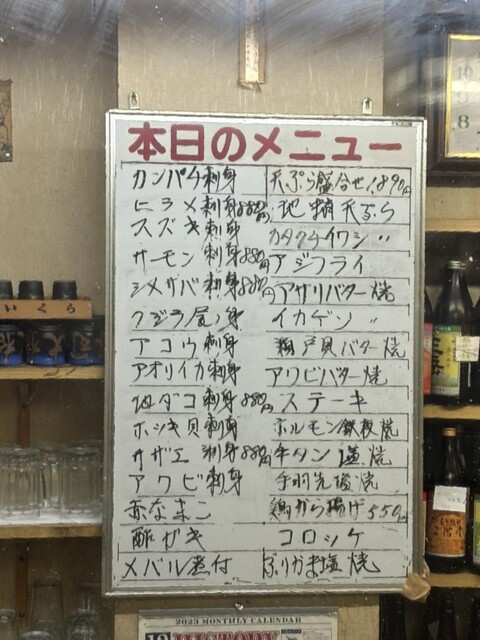 本日のメニュー
カンパチ刺身
ヒラメ刺身880円
スズキ刺身
サーモン刺身880円
シメサバ刺身880円
クジラ尾ノ身
アコウ刺身
アオリイカ刺身
地ダコ刺身880円
ホッキ貝刺身
サザエ刺身880円
アワビ刺身
赤なまこ
酢ガキ
メバル煮付
天ぷら盛合せ1,890円
地蛸天ぷら
カタクチイワシ〃
アジフライ
アサリバター焼
イカゲソ〃
瀬戸貝バター焼
アワビバター焼
ステーキ
ホルモン鉄板焼
牛タン塩焼
手羽先塩焼
鶏から揚げ550円
コロッケ
ぶりかま塩焼
いくら
2023 MONTHLY CALENDAR